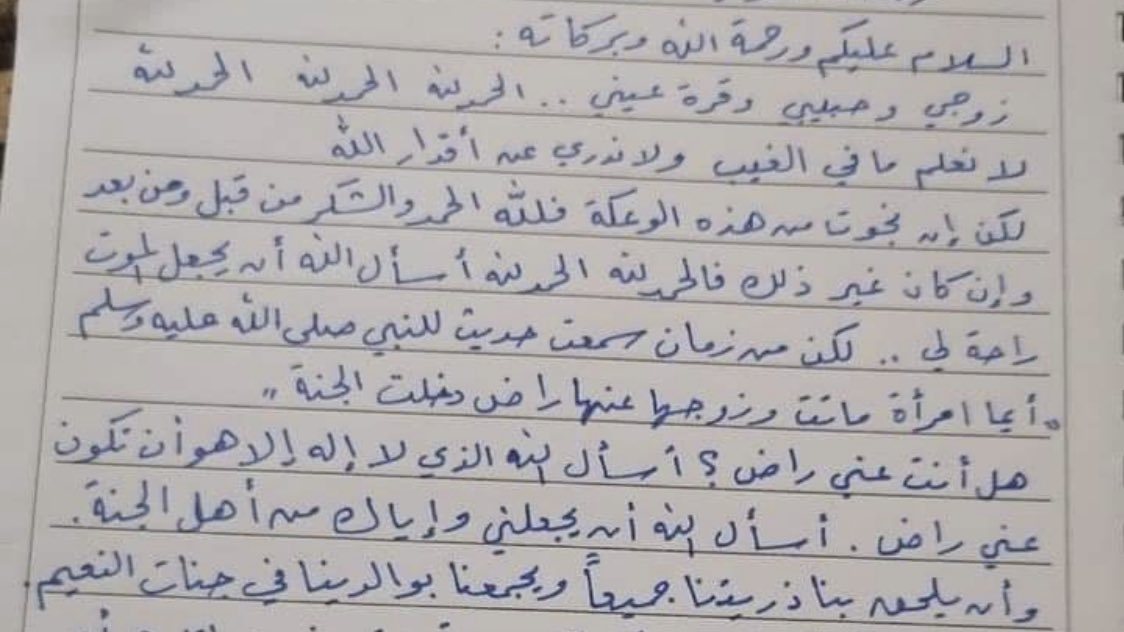 السلام عليكم ورحمة الله وبركاته :
زوجي وحبيبي وقرة عيني .. الحمدلله الحمدلله الحمدلله
لا نعلم ما في الغيب ولا ندري عن أقدار الله
لكن إن نجوت من هذه الوعكة فلله الحمد والشكر من قبل ومن بعد
وإن كان غير ذلك فالحمدلله الحمدلله أسأل الله أن يجعل الموت
راحة لي .. لكن من زمان سمعت حديث للنبي صلى الله عليه وسلم
"أيما امرأة ماتت وزوجها عنها راض دخلت الجنة"
هل أنت عني راض ؟ أسأل الله الذي لا إله إلا هو أن تكون
عني راض . أسأل الله أن يجعلني وإياك من أهل الجنة .
وأن يلحق بنا ذريتنا جميعاً ويجمعنا بوالدينا في جنات النعيم .